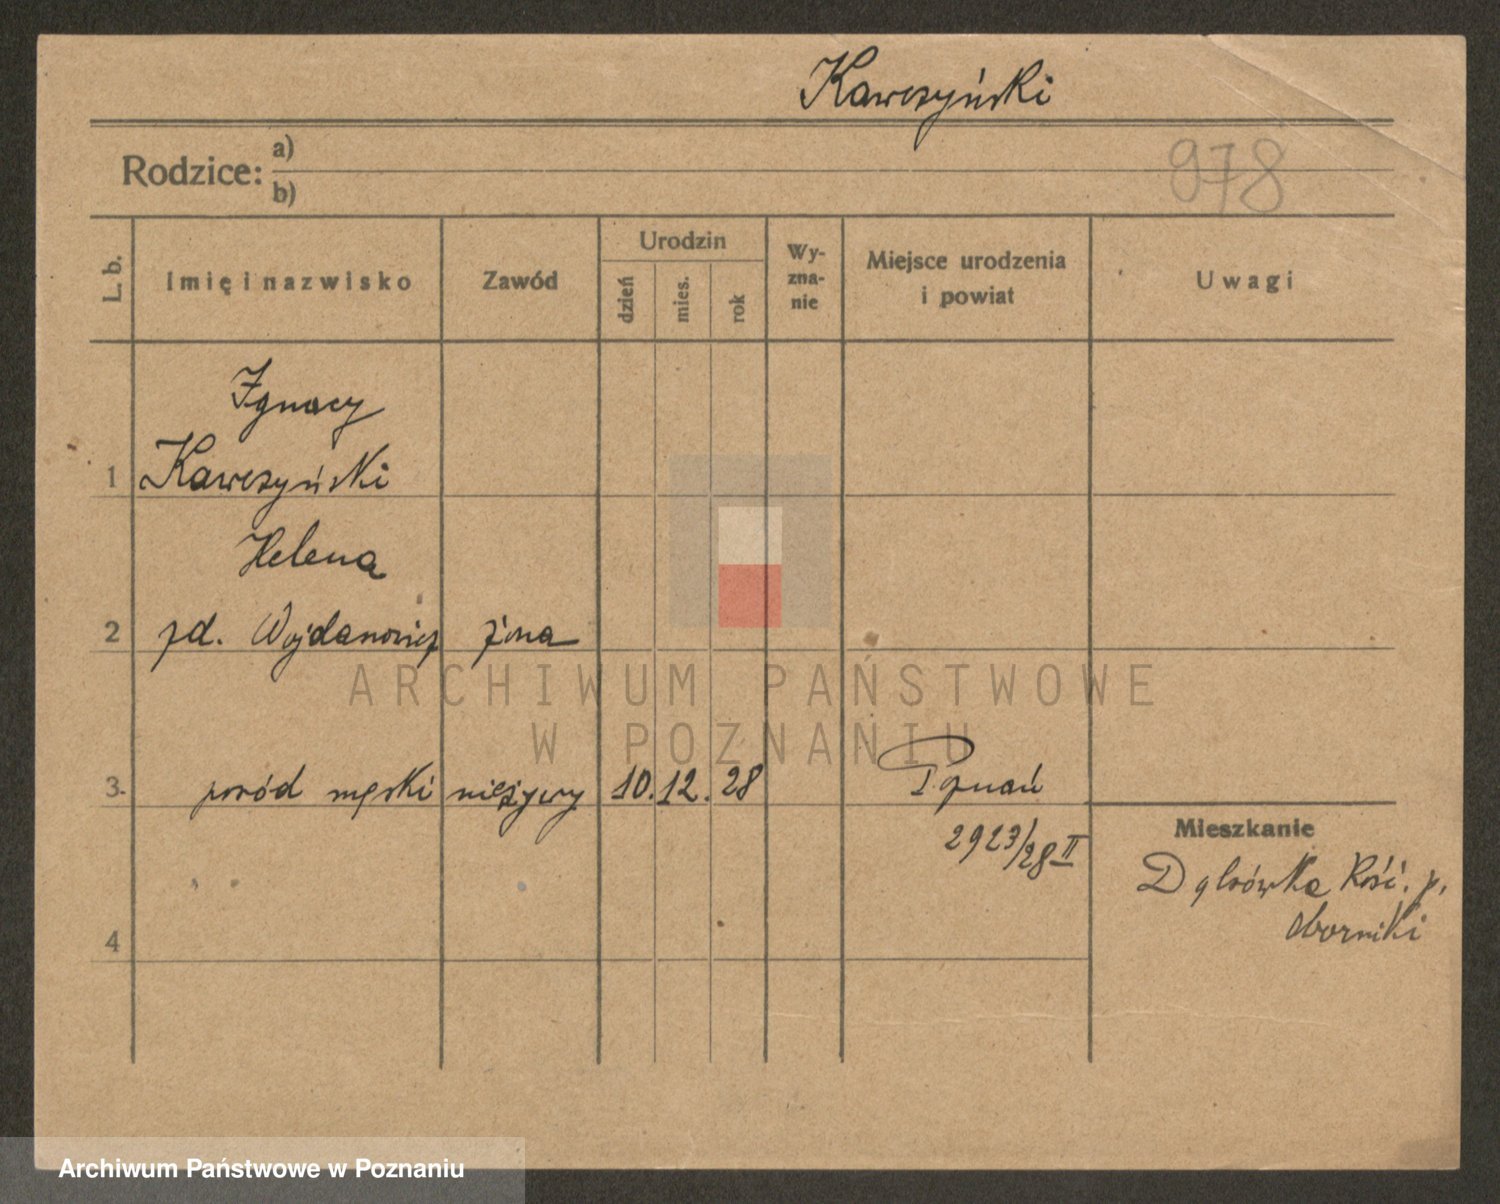 Kawczyński
Rodzice: a)
b)
978
L. b.
Imię i nazwisko
Zawód
Urodzin
dzień
mies.
rok
Wy-
zna-
nie
Miejsce urodzenia
i powiat
Uwagi
Ignacy
1 Kawczyński
Helena
2 zd. Wojdanowicz żona
ARCHIWUM PAŃSTWOWE
W POZNANIU
3. poród męski nieżywy 10. 12. 28 Poznań
2923/28 II
Mieszkanie
Dąbrówka Kość. p.
Oborniki
4
Archiwum Państwowe w Poznaniu